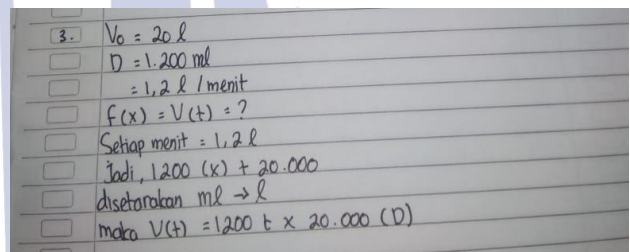 3. V₀ = 20 l
D = 1.200 ml
= 1,2 l / menit
f(x) = V(t) = ?
Setiap menit = 1,2 l
Jadi, 1200 (x) + 20.000
disetarakan ml → l
maka V(t) = 1200 t x 20.000 (D)